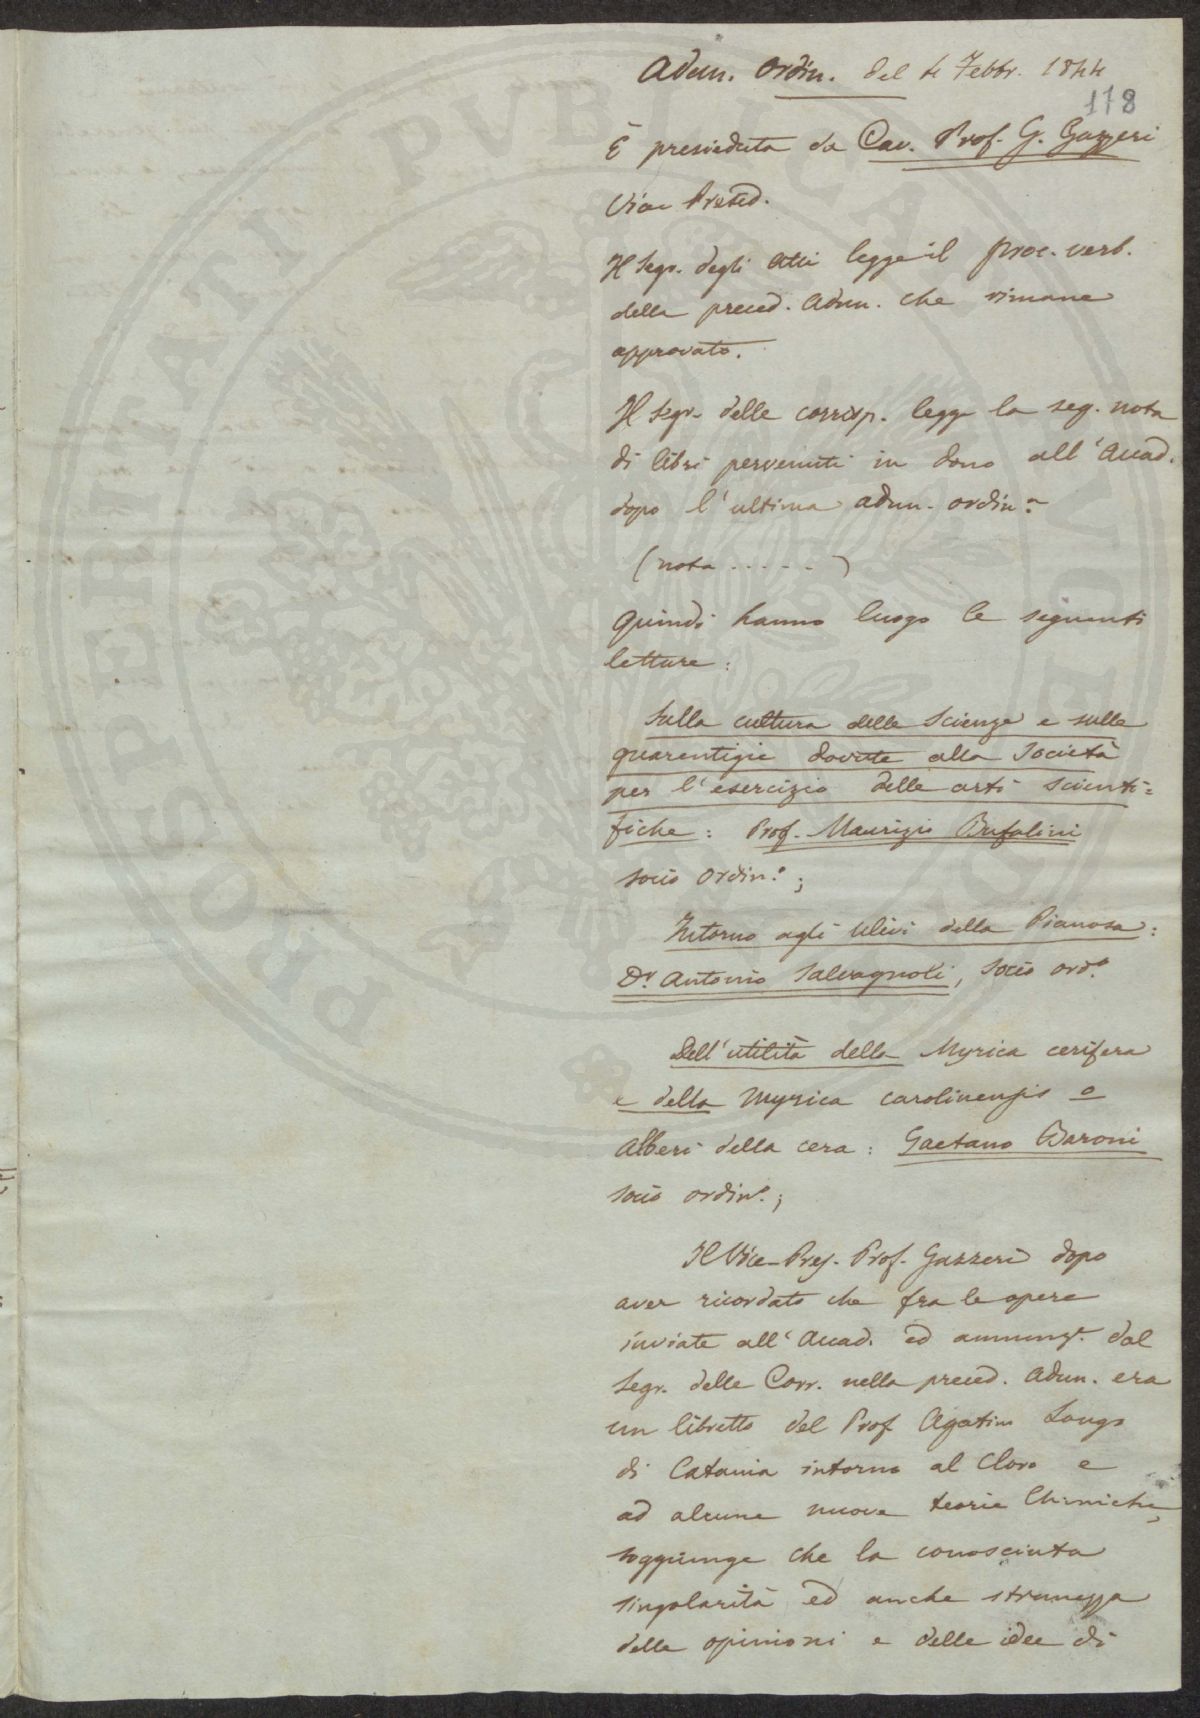 Adun. Ordin. del 4 Febbr. 1844
178
È presieduta da Cav. Prof. G. Gazzeri
Vice Presid.
Il Segr. degli Atti legge il proc. verb.
della preced. Adun. che rimane
approvato.
Il Segr. delle corrisp. legge la seg. nota
di libri pervenuti in dono all'Accad.
dopo l'ultima adun. ordin.a
(nota . . . . . )
Quindi hanno luogo le seguenti
letture:
Sulla cultura delle Scienze e sulle
guarentigie dovute alla Società
per l'esercizio delle arti scienti=
fiche: Prof. Maurizio Bufalini
socio ordin.o;
Intorno agli Ulivi della Pianosa:
Dr. Antonio Salvagnoli, socio ord.o
Dell'utilità della Myrica cerifera
e della Myrica carolinensis o
Alberi della cera: Gaetano Baroni
socio ordin.o;
Il Vice-Pres. Prof. Gazzeri dopo
aver ricordato che fra le opere
inviate all'Accad. ed annunz.e dal
Segr. delle Corr. nella preced. Adun. era
un libretto del Prof Agatino Longo
di Catania intorno al Cloro e
ad alcune nuove teorie Chimiche,
soggiunge che la conosciuta
singolarità ed anche stranezza
delle opinioni e delle idee di
PROSPERITATI PVBLICAE AVGENDAE